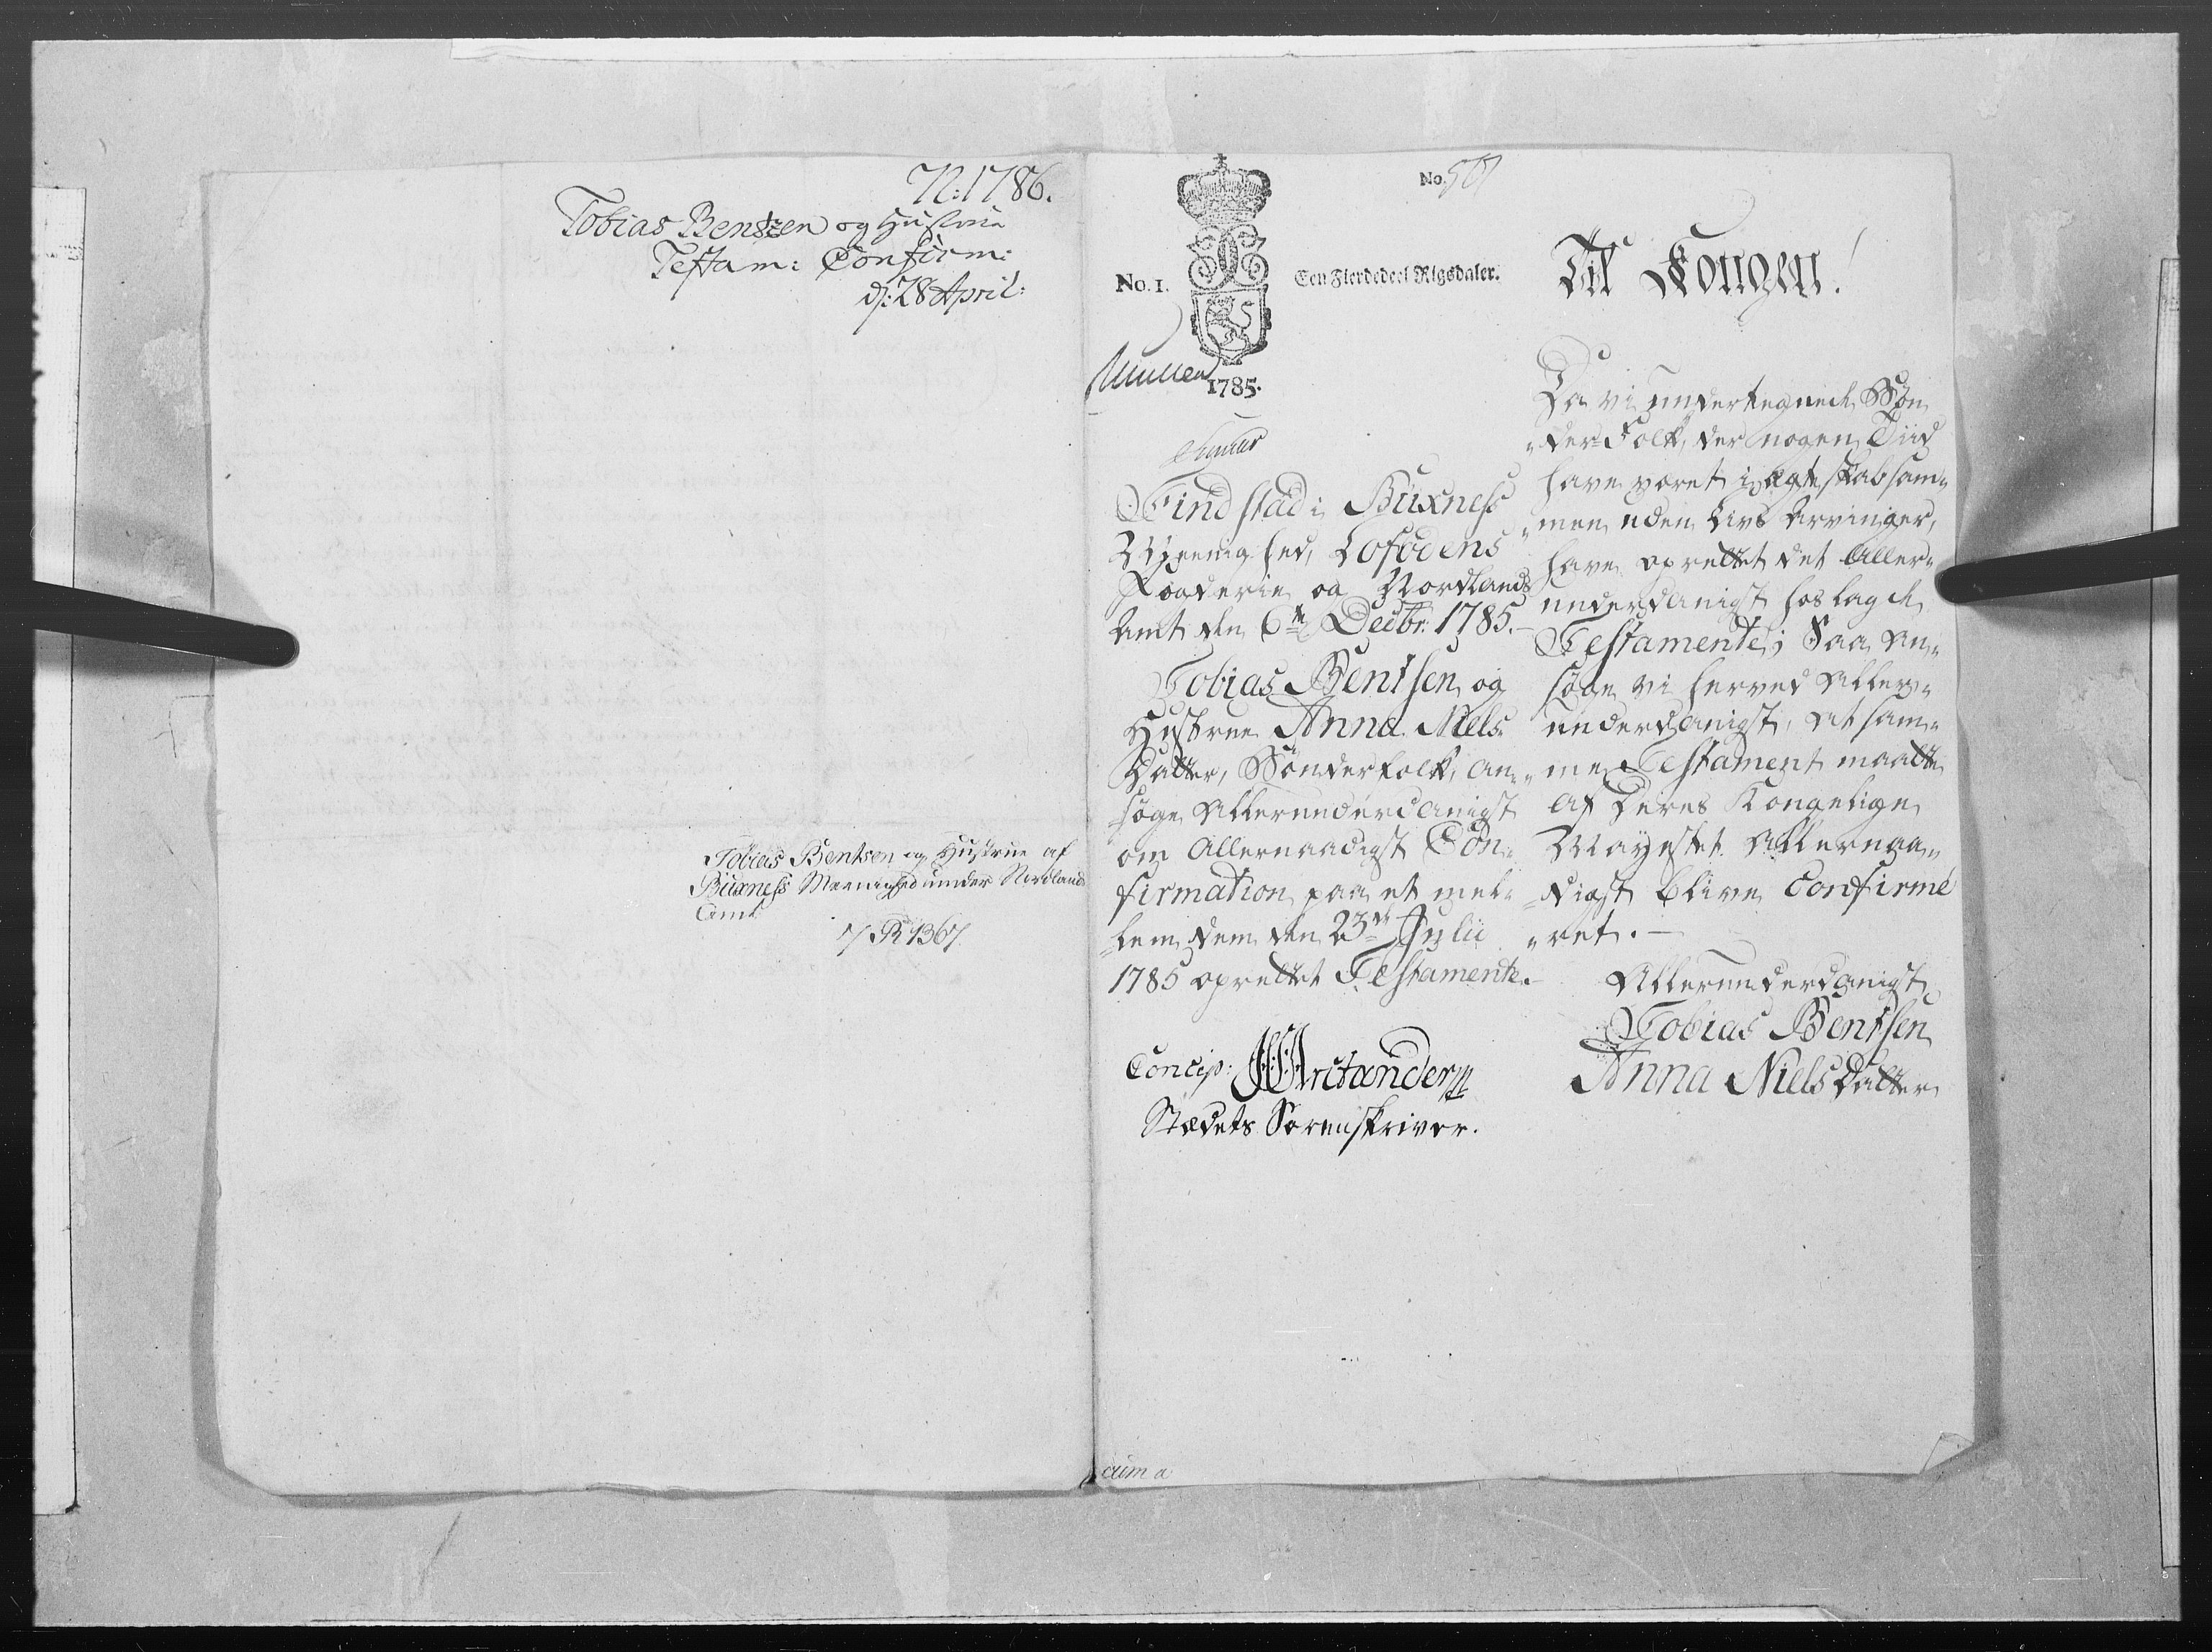 N: 1786.
Tobias Bentzen og Hustrue
Testam: Confirm:
d: 28 April:
Tobias Bentsen og Hustrue af
Buxness Meenighed under Nordlands
Amt
R 1367
No.
No. 1.
Een Fierdedeel Rigsdaler.
1785.
Findstad i Buxness
Meenighed, Lofodens
Fogderie og Nordlands
Amt den 6te Decbr: 1785.
Tobias Bentsen og
Hustrue Anna Niels
Datter, Bønderfolk, an-
søge Allerunderdanigst
om Allernaadigst Con-
firmation paa et mel-
lem dem den 23de Julii
1785 oprettet Testamente.
Concip: Arctander
Stædets Sorenskriver.
Til Kongen!
Da vi undertegnede Bøn-
der-Folk, der nogen Tiid
have været i ægteskab sam-
men uden Livs Arvinger,
have oprettet det Aller-
underdanigst hoslagde
Testamente; Saa an-
søge vi herved Aller-
underdanigst, at sam-
me Testament maatte
af Deres Kongelige
Mayestet Allernaa-
digst blive Confirme-
ret.
Allerunderdanigst
Tobias Bentsen
Anna Niels Datter
cum a